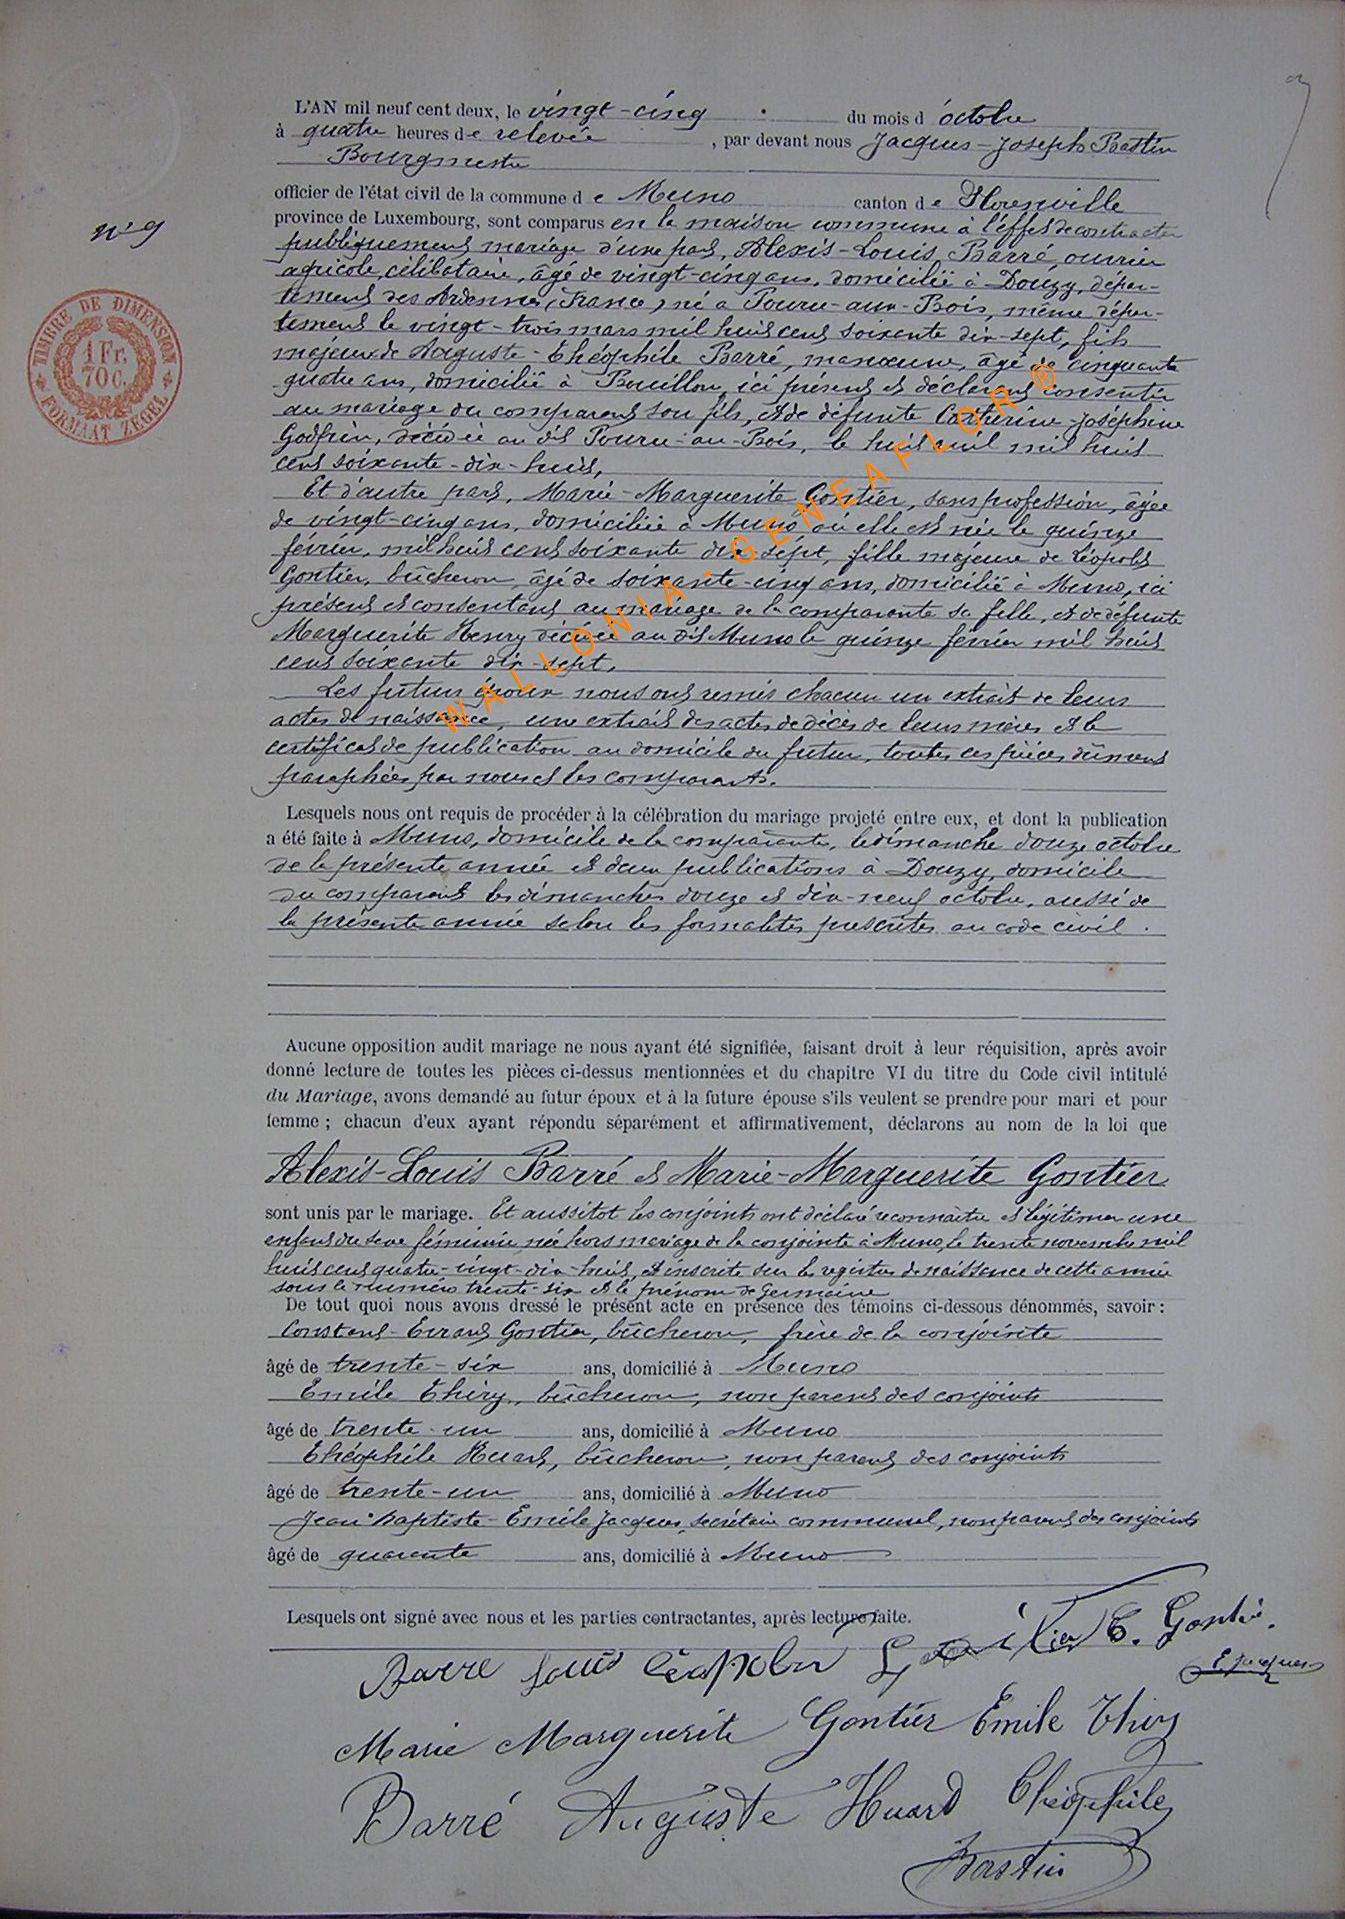 L'AN mil neuf cent deux, le vingt-cinq du mois d'octobre
à quatre heures de relevée, par devant nous Jacques-Joseph Bastin
Bourgmestre
officier de l'état civil de la commune de Muno canton de Florenville
province de Luxembourg, sont comparus en la maison commune à l'effet de contracter
n° 9
publiquement mariage d'une part, Alexis-Louis Barré, ouvrier
agricole, célibataire, âgé de vingt-cinq ans, domicilié à Douzy, dépar-
tement des Ardennes (France) né à Pouru-aux-Bois, même dépar-
tement le vingt-trois mars mil huit cent soixante dix-sept, fils
majeur de Auguste-Théophile Barré, manœuvre, âgé de cinquante
quatre ans, domicilié à Bouillon, ici présent et déclarant consentir
au mariage du comparant son fils, et de défunte Catherine-Joséphine
Godfrin, décédée au dit Pouru-au-Bois, le huit avril mil huit
cent soixante-dix-huit,
Et d'autre part, Marie-Marguerite Gontier, sans profession, âgée
de vingt-cinq ans, domiciliée à Muno où elle est née le quinze
février, mil huit cent soixante dix-sept, fille majeure de Léopold
Gontier, bûcheron, âgé de soixante-cinq ans, domicilié à Muno, ici
présent et consentant au mariage de la comparante sa fille, et de défunte
Marguerite Henry décédée au dit Muno le quinze février mil huit
cent soixante dix-sept.
Les futurs époux nous ont remis chacun un extrait de leurs
actes de naissance, un extrait des actes de décès de leurs mères et le
certificat de publication au domicile du futur, toutes ces pièces dûment
paraphées par nous et les comparants.
WALLONIA-GENEAFLOR ®
TIMBRE DE DIMENSION
1 Fr.
70 C.
FORMAAT ZEGEL
Lesquels nous ont requis de procéder à la célébration du mariage projeté entre eux, et dont la publication
a été faite à Muno, domicile de la comparante, le dimanche douze octobre
de la présente année et deux publications à Douzy, domicile
du comparant les dimanches douze et dix-neuf octobre, aussi de
la présente année selon les formalités prescrites au code civil.
Aucune opposition audit mariage ne nous ayant été signifiée, faisant droit à leur réquisition, après avoir
donné lecture de toutes les pièces ci-dessus mentionnées et du chapitre VI du titre du Code civil intitulé
du Mariage, avons demandé au futur époux et à la future épouse s'ils veulent se prendre pour mari et pour
femme ; chacun d'eux ayant répondu séparément et affirmativement, déclarons au nom de la loi que
Alexis-Louis Barré et Marie-Marguerite Gontier
sont unis par le mariage. Et aussitôt les conjoints ont déclaré reconnaître et légitimer une
enfant du sexe féminin née hors mariage de la conjointe à Muno, le trente novembre mil
huit cent quatre-vingt-dix-huit, et inscrite sur les registres de naissance de cette année
sous le numéro trente-six et le prénom de Germaine
De tout quoi nous avons dressé le présent acte en présence des témoins ci-dessous dénommés, savoir :
Constant- Gontier, bûcheron, frère de la conjointe
âgé de trente-six ans, domicilié à Muno
Emile Thiry, bûcheron, non parent des conjoints
âgé de trente-un ans, domicilié à Muno
Théophile Huart, bûcheron, non parent des conjoints
âgé de trente-un ans, domicilié à Muno
Jean-Baptiste-Emile Jacques, secrétaire communal, non parent des conjoints
âgé de quarante ans, domicilié à Muno
Lesquels ont signé avec nous et les parties contractantes, après lecture faite.
Barre Louis Léopold Gontier C. Gontier.
E. Jacques
Marie Marguerite Gontier Emile Thiry
Barré Auguste Huard Théophile
Bastin